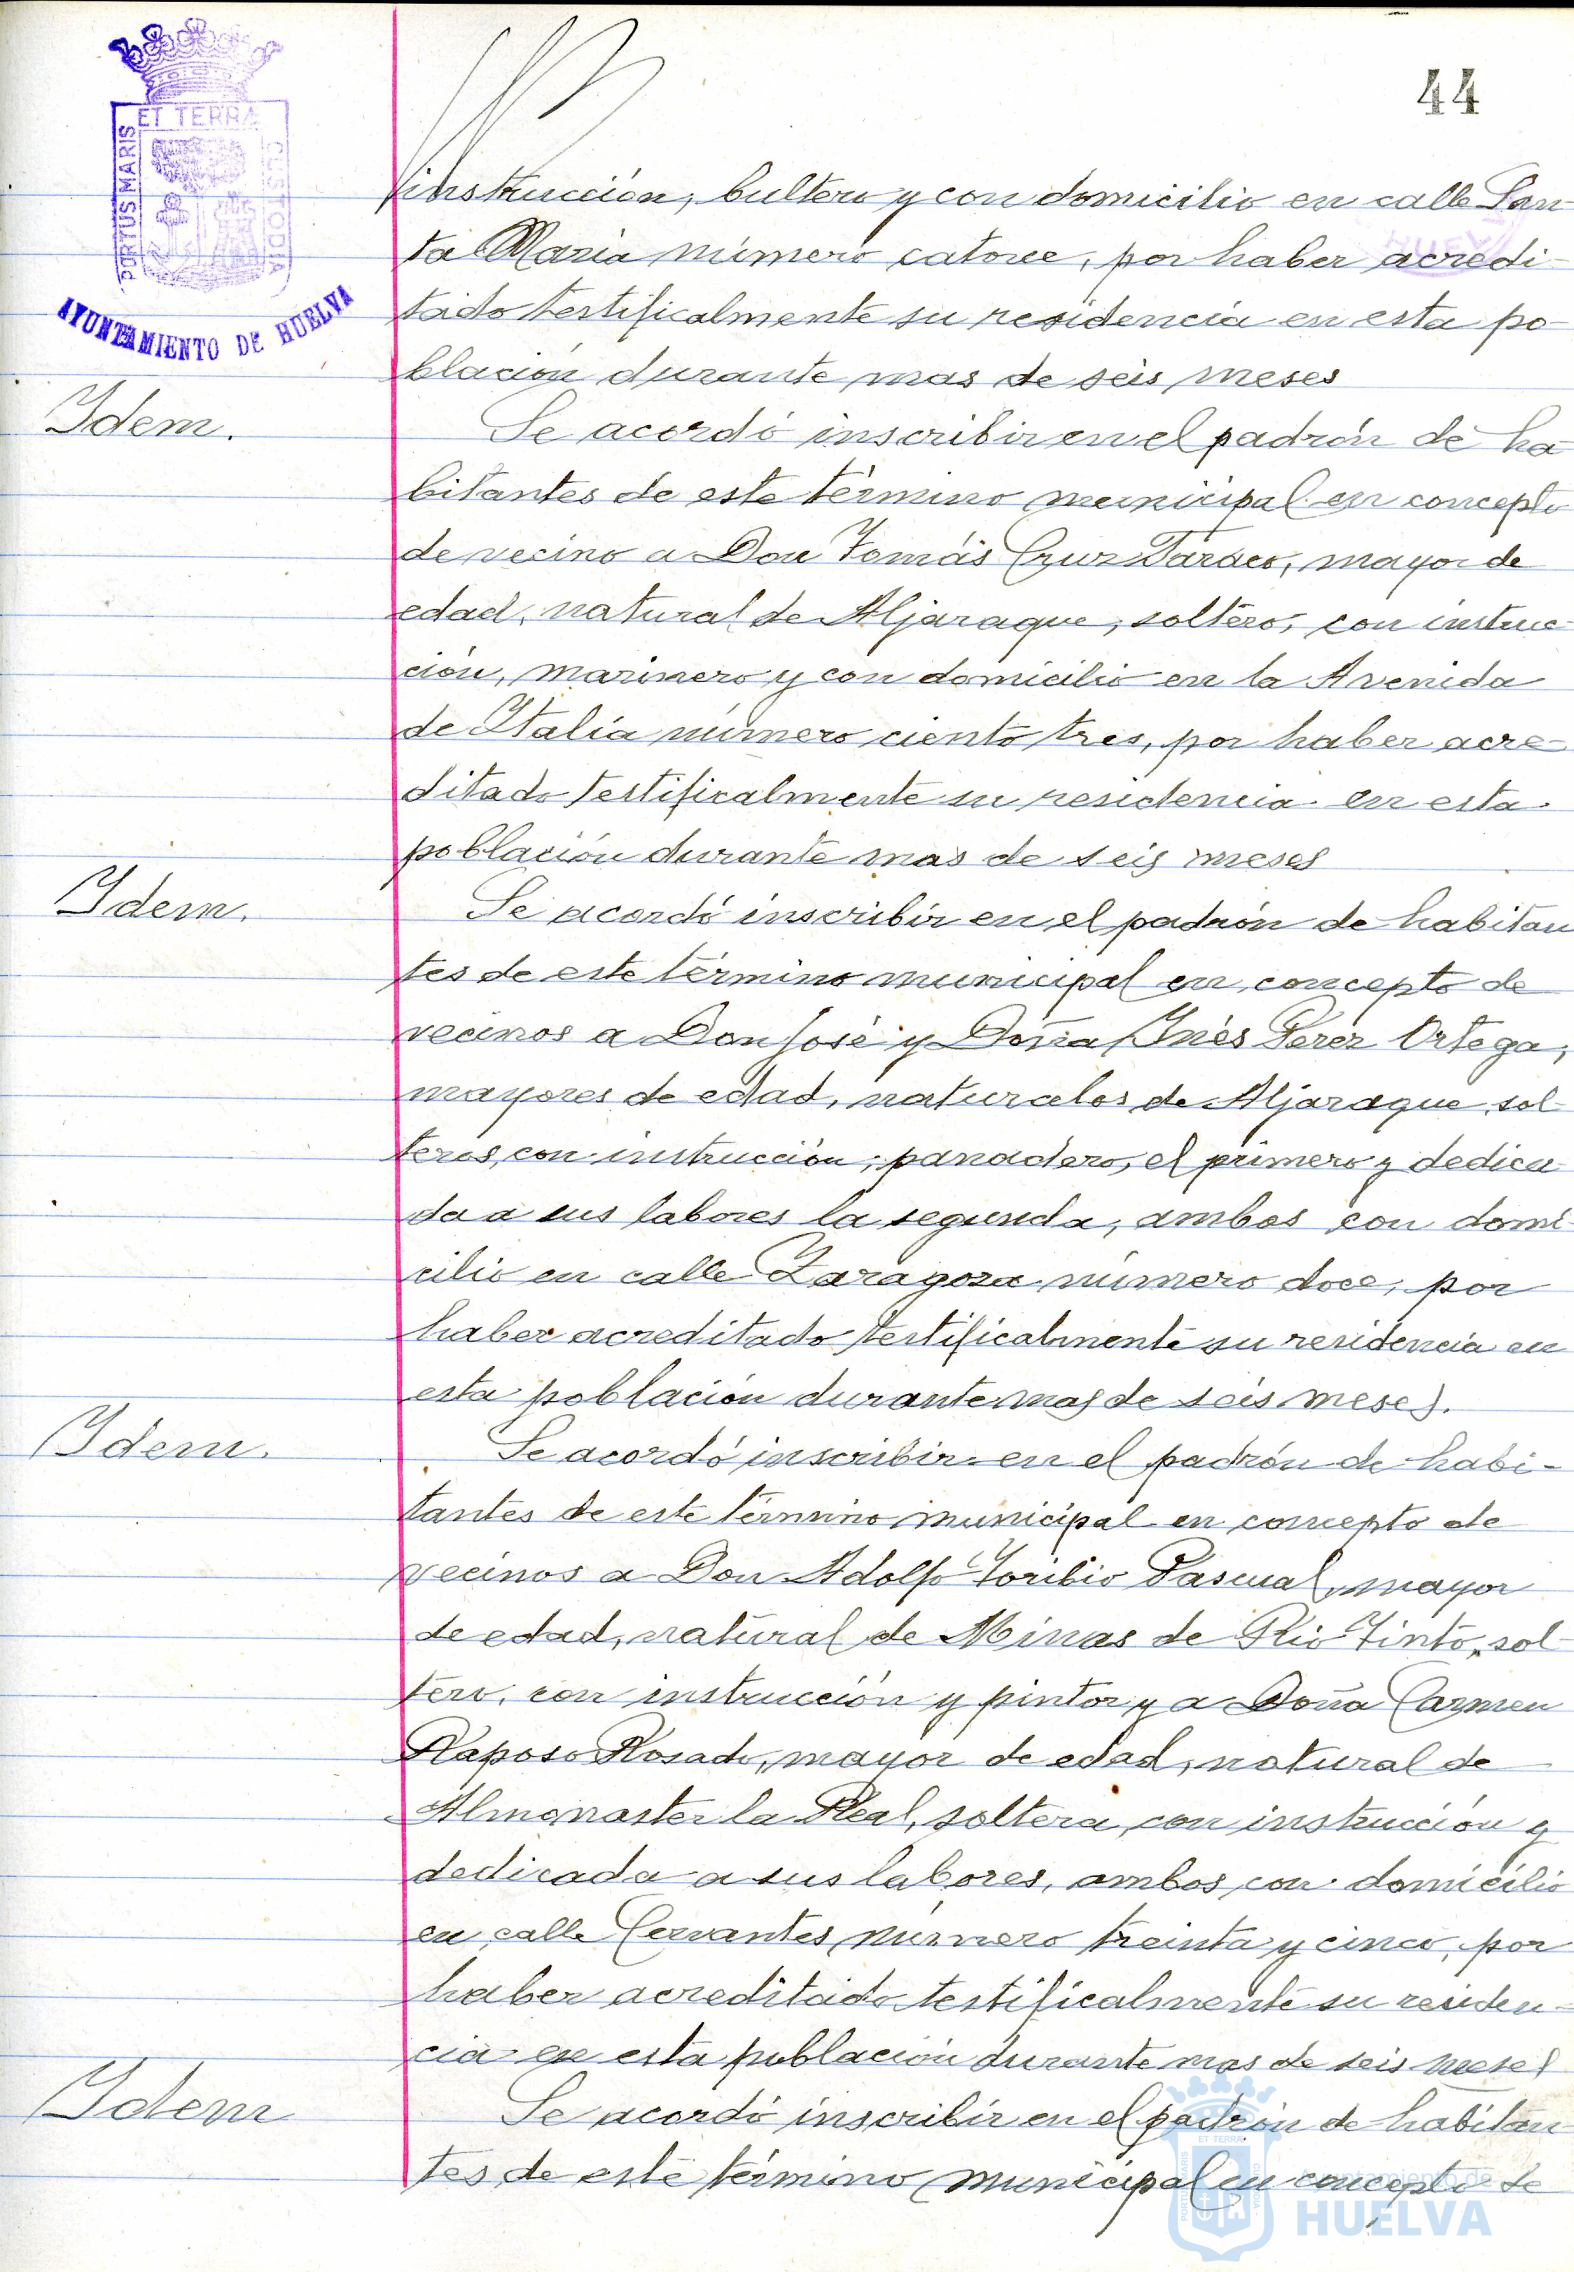 44
ET TERRÆ
PORTUS MARIS
CUSTODIA
AYUNTAMIENTO DE HUELVA
instrucción, bultero y con domicilio en calle San-
ta Maria número catorce, por haber acredi-
tado testificalmente su residencia en esta po-
blación durante mas de seis meses
Idem.
Se acordó inscribir en el padrón de ha-
bitantes de este término municipal en concepto
de vecino a Don Tomás Cruz, mayor de
edad, natural de Aljaraque, soltero, con instruc-
ción, marinero y con domicilio en la Avenida
de Italia número ciento tres, por haber acre-
ditado testificalmente su residencia en esta
población durante mas de seis meses
Idem.
Se acordó inscribir en el padrón de habitan
tes de este término municipal en concepto de
vecinos a Don José y Doña Inés Perez Ortega,
mayores de edad, naturales de Aljaraque, sol-
teros, con instrucción, panadero, el primero y dedica
da a sus labores la segunda, ambos con domi-
cilio en calle Zaragoza número doce, por
haber acreditado testificalmente su residencia en
esta población durante mas de seis meses.
Idem.
Se acordó inscribir en el padrón de habi-
tantes de este término municipal en concepto de
vecinos a Don Adolfo Toribio Pascual, mayor
de edad, natural de Minas de Rio Tinto, sol-
tero, con instrucción y pintor y a Doña Carmen
Raposo Rosado, mayor de edad, natural de
Almonaster la Real, soltera, con instrucción y
dedicada a sus labores, ambos con domicilio
en calle Cervantes número treinta y cinco, por
haber acreditado testificalmente su residen-
cia en esta población durante mas de seis meses
Idem
Se acordó inscribir en el padrón de habitan-
tes de este término municipal en concepto de
Ayuntamiento de
HUELVA